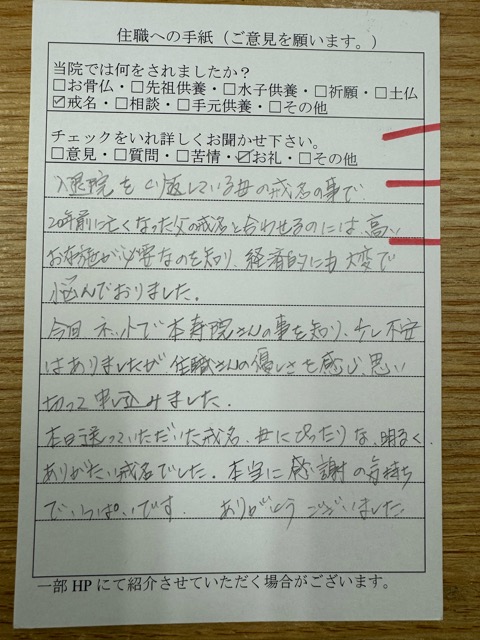 住職への手紙（ご意見を願います。）
当院では何をされましたか？
□お骨仏・□先祖供養・□水子供養・□祈願・□土仏
☑戒名・□相談・□手元供養・□その他
チェックをいれ詳しくお聞かせ下さい。
□意見・□質問・□苦情・☑お礼・□その他
入退院をくり返している母の戒名の事で
20年前に亡くなった父の戒名と合わせるのには、高い
お布施が必要なのを知り、経済的にも大変で
悩んでおりました。
今回ネットで本寿院さんの事を知り、少し不安
はありましたが住職さんの優しさも感じ思い
切って申し込みました。
本日送っていただいた戒名、母にぴったりな、明るく
ありがたい戒名でした。本当に感謝の気持ち
でいっぱいです。 ありがとうございました
一部HPにて紹介させていただく場合がございます。